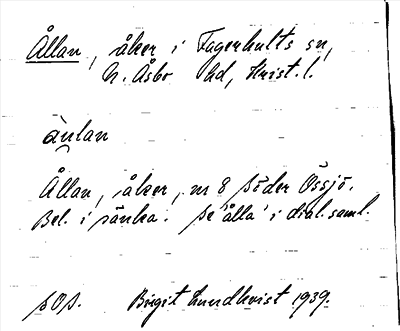 Ållan, åker i Fagerhults sn,
N. Åsbo hd, Krist. l.
Ållan, åker, nr 8 Söder Össjö.
Bel. i sänka. Se 'ålla' i dial.saml.
Birgit Lundkvist 1939.